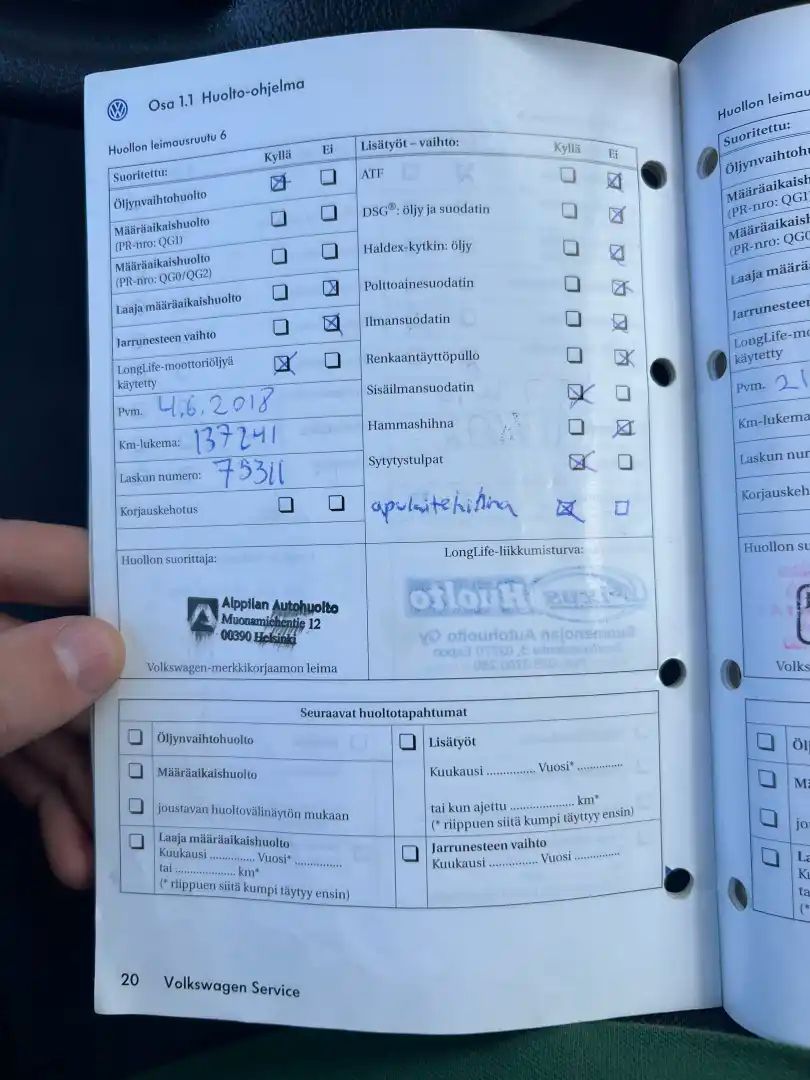 Osa 1.1 Huolto-ohjelma
Huollon leimausruutu 6
Suoritettu: Kyllä Ei
Öljynvaihtohuolto
Määräaikaishuolto
(PR-nro: QG1)
Määräaikaishuolto
(PR-nro: QG0/QG2)
Laaja määräaikaishuolto
Jarrunesteen vaihto
LongLife-moottoriöljyä
käytetty
Pvm. 4.6.2018
Km-lukema: 137241
Laskun numero: 75311
Korjauskehotus
Lisätyöt – vaihto: Kyllä Ei
ATF
DSG®: öljy ja suodatin
Haldex-kytkin: öljy
Polttoainesuodatin
Ilmansuodatin
Renkaantäyttöpullo
Sisäilmansuodatin
Hammashihna
Sytytystulpat
apulaitehihna
Huollon suorittaja:
Alppilan Autohuolto
Muonamiehentie 12
00390 Helsinki
Volkswagen-merkkikorjaamon leima
LongLife-liikkumisturva:
Huolto
Seuraavat huoltotapahtumat
Öljynvaihtohuolto
Määräaikaishuolto
joustavan huoltovälinäytön mukaan
Laaja määräaikaishuolto
Kuukausi .............. Vuosi* ..............
tai .................... km*
(* riippuen siitä kumpi täytyy ensin)
Lisätyöt
Kuukausi .............. Vuosi* ..............
tai kun ajettu .................... km*
(* riippuen siitä kumpi täyttyy ensin)
Jarrunesteen vaihto
Kuukausi .............. Vuosi ..............
20 Volkswagen Service
Huollon leimau
Suoritettu:
Öljynvaihtohu
Määräaikaish
(PR-nro: QG1
Määräaikaish
(PR-nro: QG0
Laaja määrä
Jarrunesteen
LongLife-mo
käytetty
Pvm. 21
Km-lukema
Laskun nur
Korjauskeh
Huollon su
Volks
Öl
Mä
jo
La
Ku
ta
(*